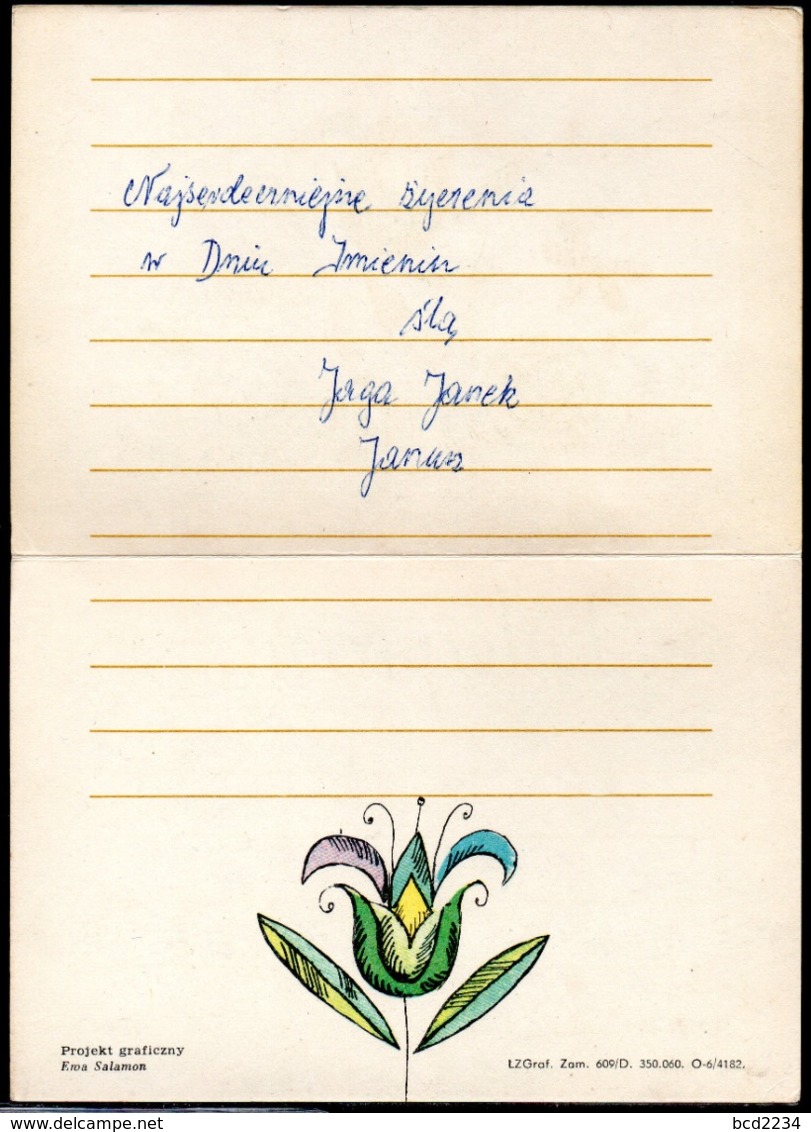 Najserdeczniejsze życzenia
w Dniu Imienin
ślą
Jaga Janek
Janusz
Projekt graficzny
Ewa Salamon
ŁZGraf. Zam. 609/D. 350.060. O-6/4182.
delcampe.net
bcd2234